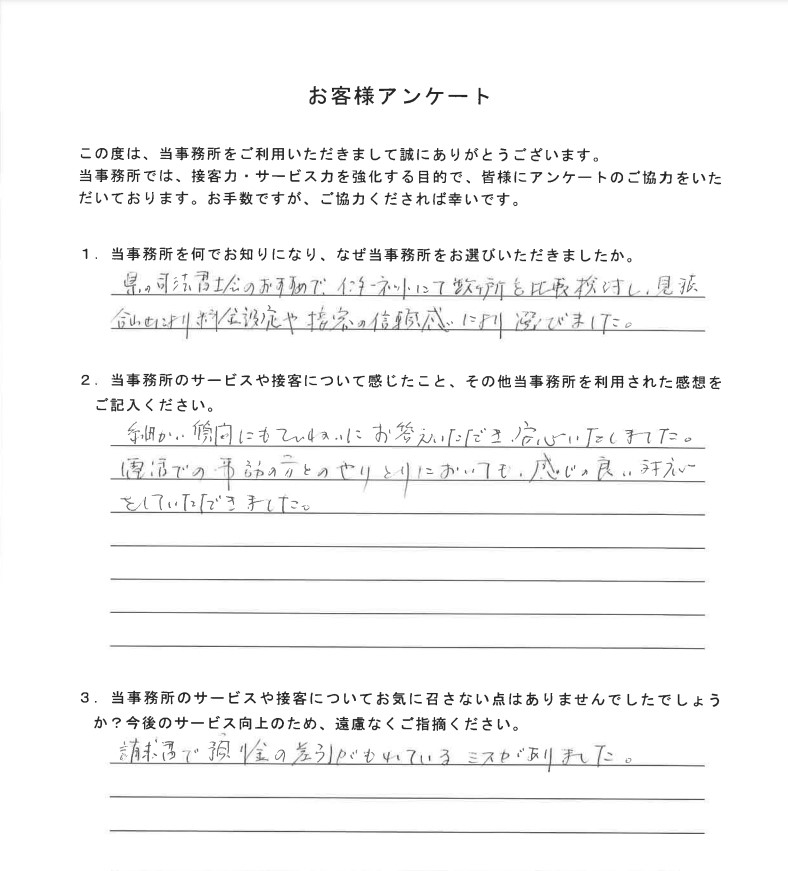 お客様アンケート
この度は、当事務所をご利用いただきまして誠にありがとうございます。
当事務所では、接客力・サービス力を強化する目的で、皆様にアンケートのご協力をいた
だいております。お手数ですが、ご協力くだされば幸いです。
1．当事務所を何でお知りになり、なぜ当事務所をお選びいただきましたか。
県の司法書士会のおすすめで、インターネットにて数ヶ所を比較検討し、見張
合わせにより料金設定や接客の信頼感により選びました。
2．当事務所のサービスや接客について感じたこと、その他当事務所を利用された感想を
ご記入ください。
細かい質問にもていねいにお答えいただき安心いたしました。
電話での事務の方とのやりとりにおいても、感じの良い対応
をしていただきました。
3．当事務所のサービスや接客についてお気に召さない点はありませんでしたでしょう
か？今後のサービス向上のため、遠慮なくご指摘ください。
請求書で預り金の差引がもれているミスがありました。